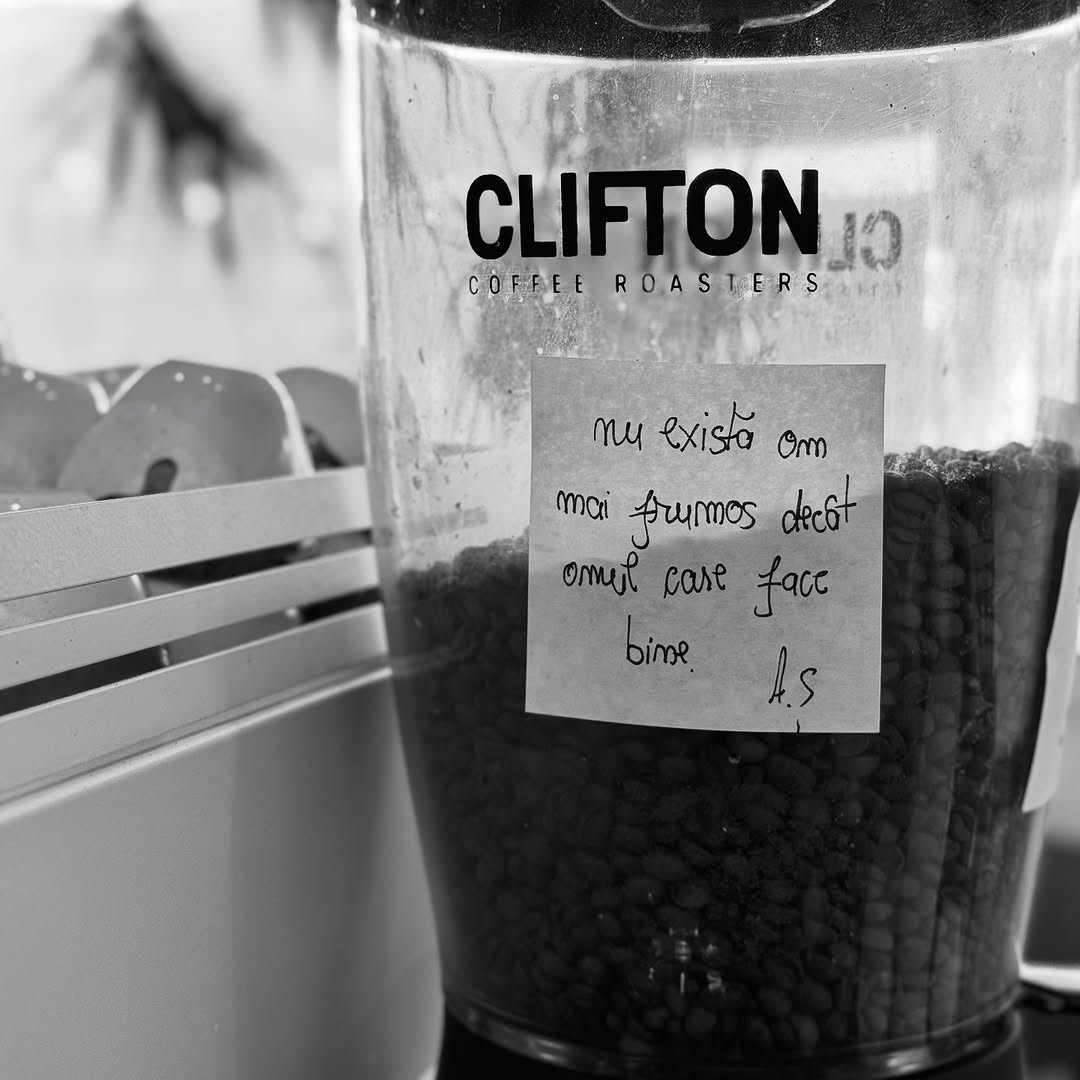 CLIFTON
COFFEE ROASTERS
nu există om
mai frumos decât
omul care face
bine.
A.S